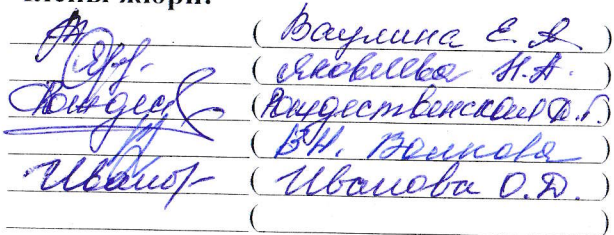 Члены жюри:
( Ваулина Е. А )
( Яковлева Н.А. )
( Рождественская Д.Г. )
( В.Н. Волкова )
( Иванова О.Д. )
( )